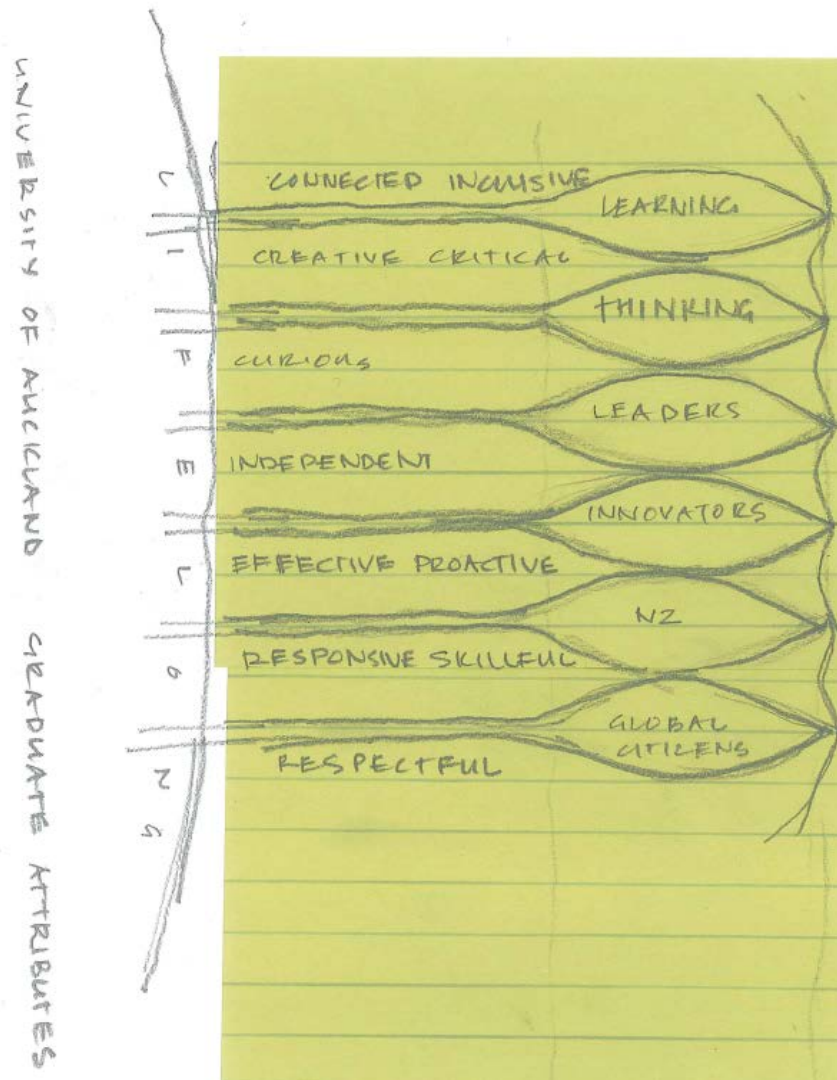 UNIVERSITY OF AUCKLAND GRADUATE ATTRIBUTES
LIFELONG
CONNECTED INCLUSIVE
LEARNING
CREATIVE CRITICAL
THINKING
CURIOUS
LEADERS
INDEPENDENT
INNOVATORS
EFFECTIVE PROACTIVE
NZ
RESPONSIVE SKILLFUL
GLOBAL
CITIZENS
RESPECTFUL